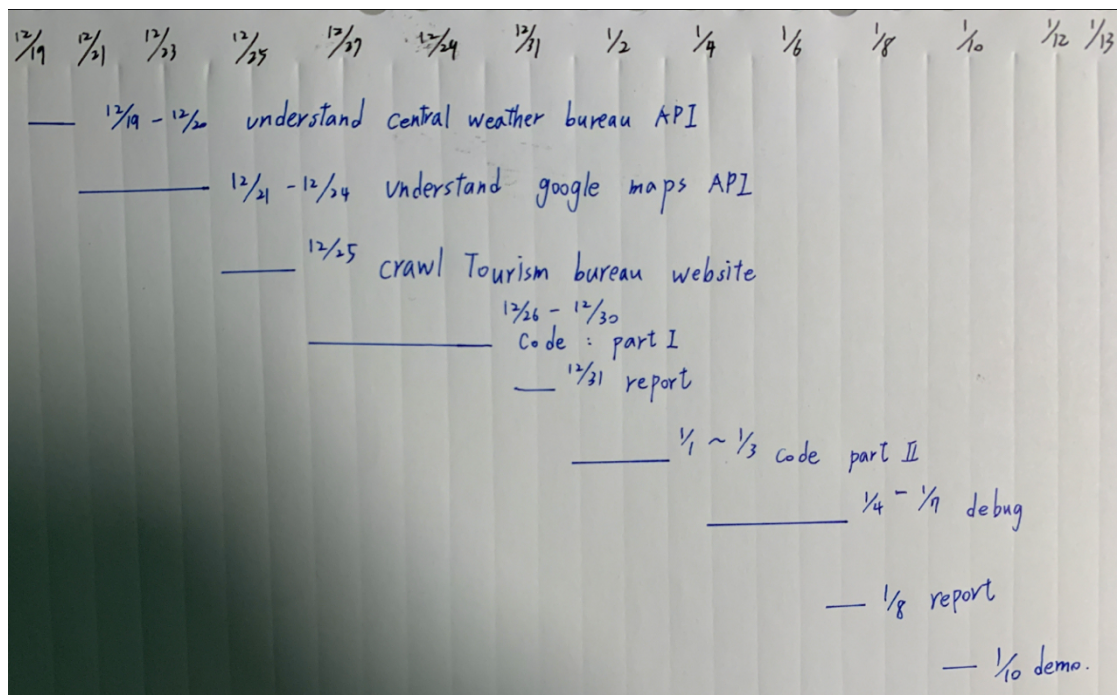 12/19 12/21 12/23 12/25 12/27 12/29 12/31 1/2 1/4 1/6 1/8 1/10 1/12 1/13
12/19 - 12/20 understand central weather bureau API
12/21 - 12/24 understand google maps API
12/25 crawl Tourism bureau website
12/26 - 12/30
Code : part I
12/31 report
1/1 ~ 1/3 code part II
1/4 - 1/7 debug
1/8 report
1/10 demo.